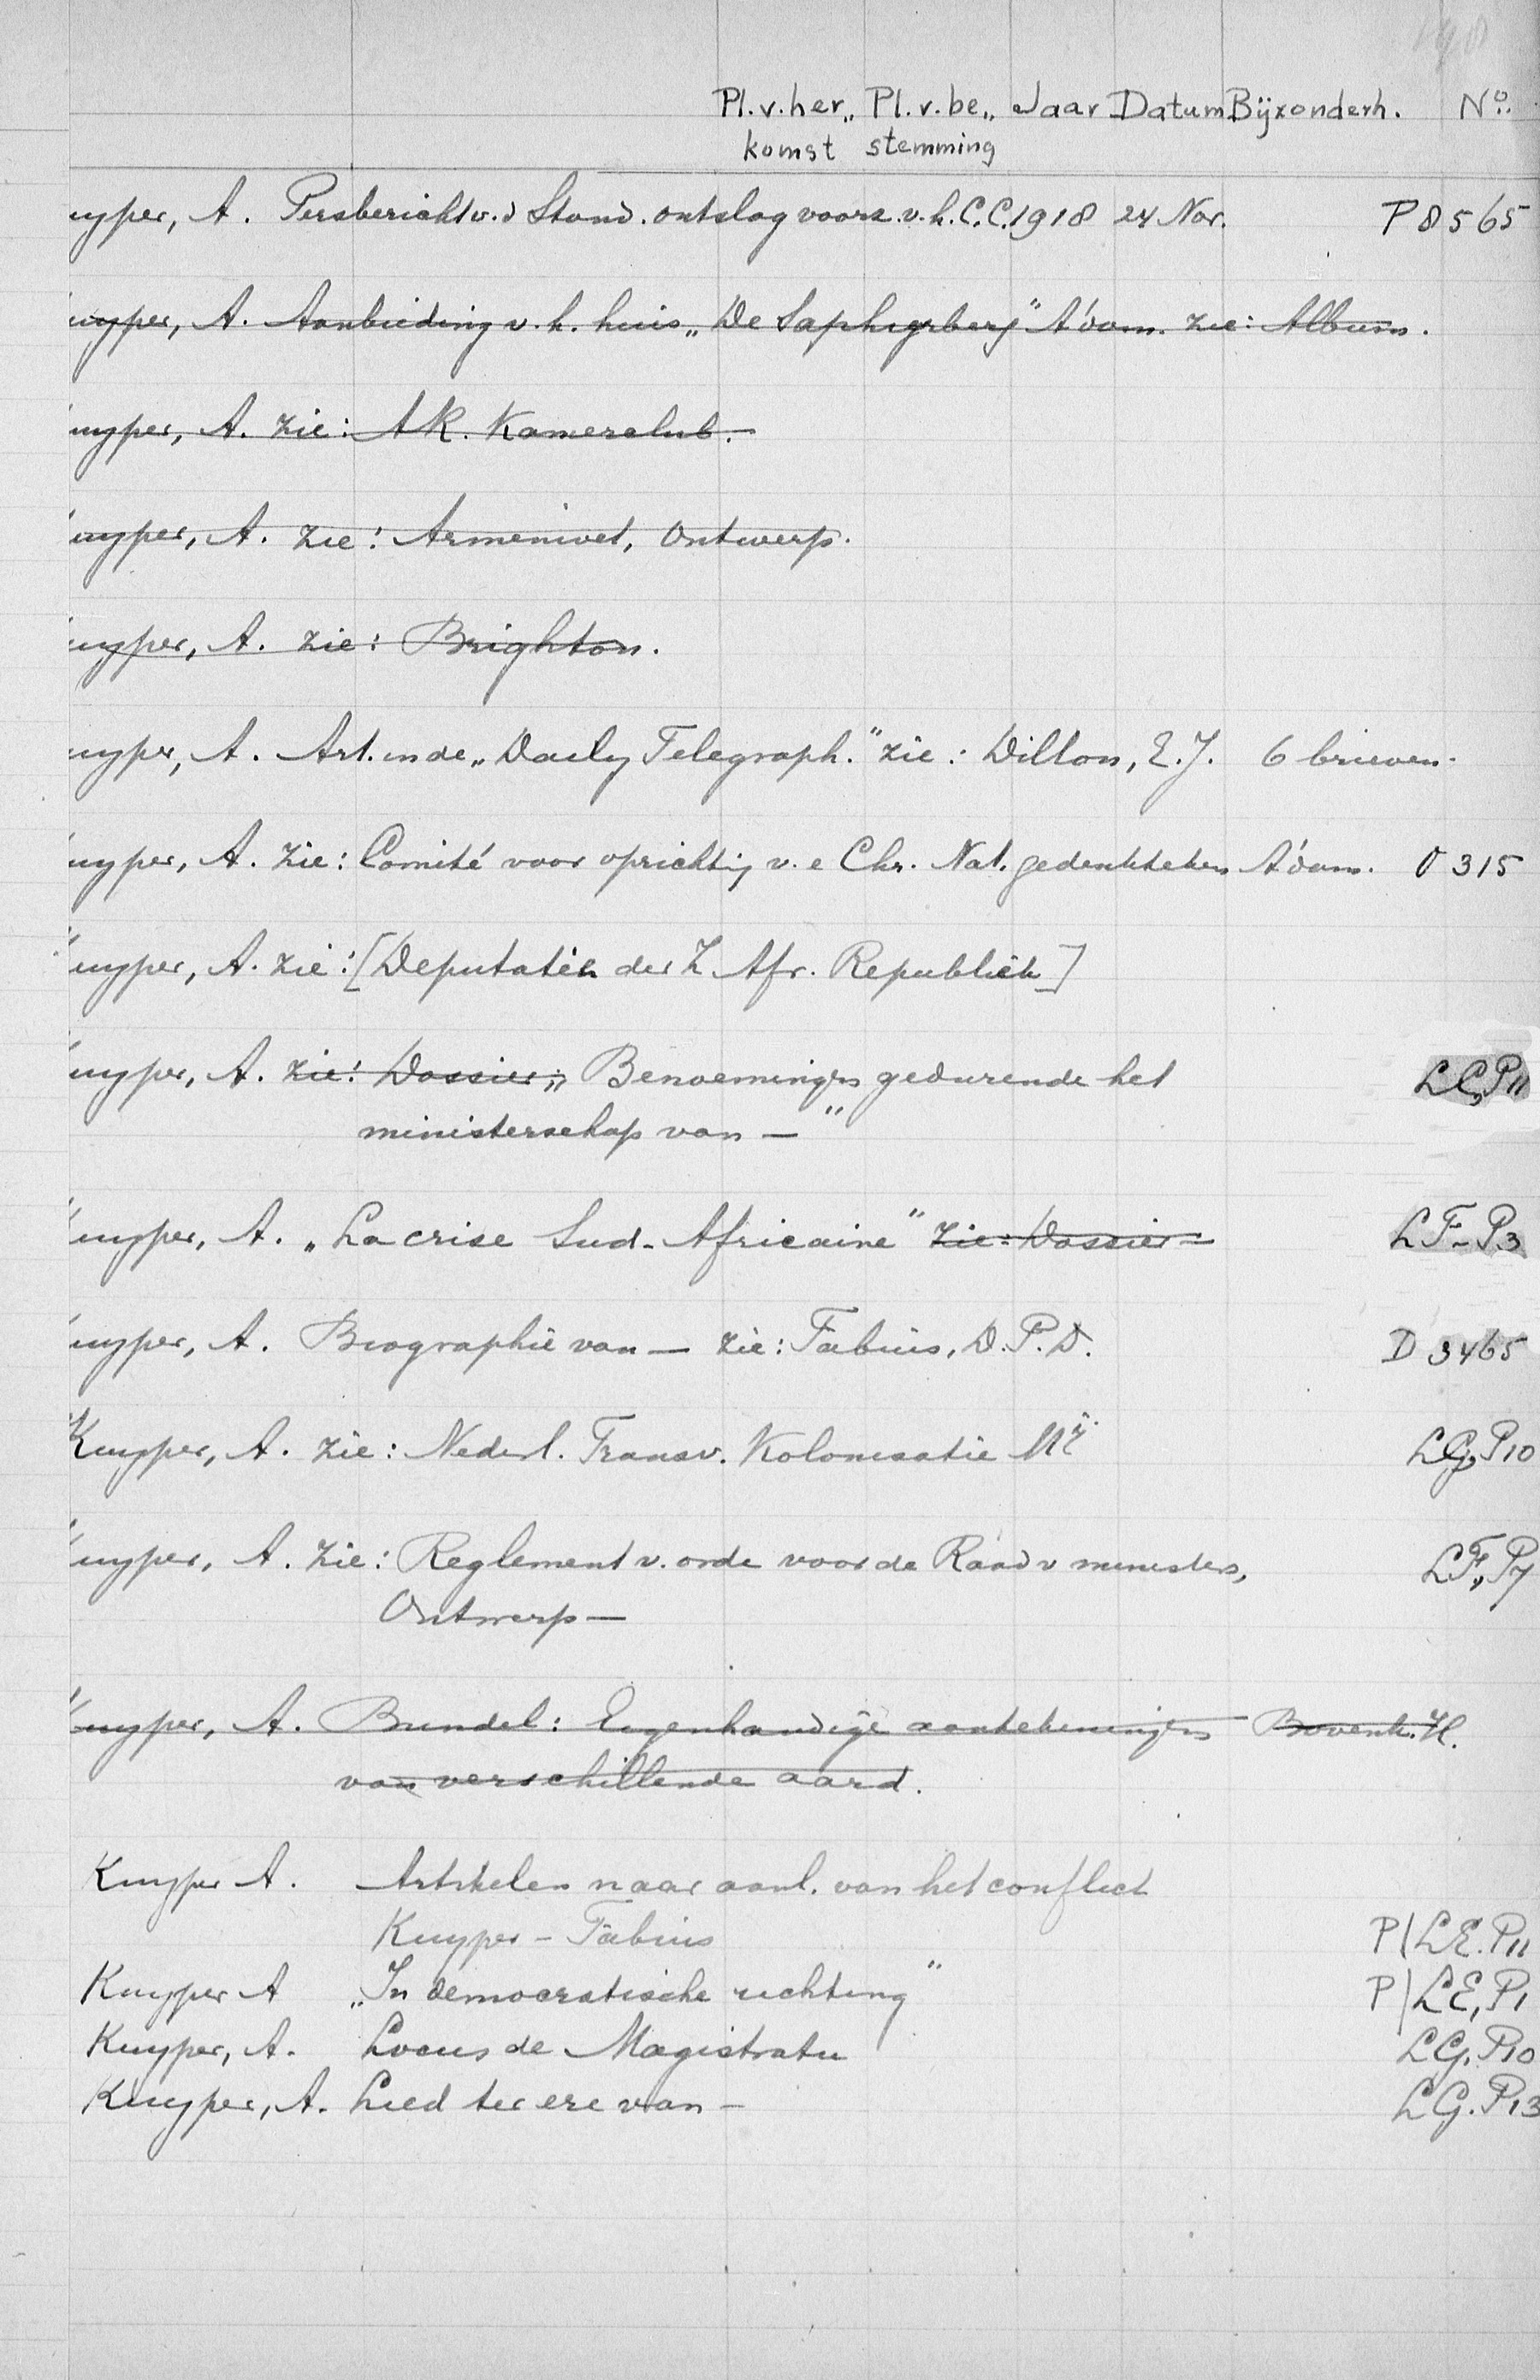 198
Pl. v. her„ Pl. v. be„ Jaar Datum Bijzonderh. No.
komst stemming
uyper, A. Persbericht v. d Stand. ontslag voorz. v. h. C.C. 1918 24 Nov. P 8565
uyper, A. Aanbieding v. h. huis „De Saphyrberg" A'dam. zie: Album.
uyper, A. zie: AR. Kamerclub.-
uyper, A. zie: Armenwet, Ontwerp.
uyper, A. zie: Brighton.
uyper, A. Art. in de „Daily Telegraph." zie: Dillon, E.J. 6 brieven.
uyper, A. zie: Comité voor oprichtig v. e Chr. Nat. gedenkteken A'dam. O 315
uyper, A. zie: [Deputatie der Z. Afr. Republiek]
uyper, A. zie: Dossier „Benoemingen gedurende het LC, P11
ministerschap van —"
uyper, A. „La crise Sud-Africaine" zie: Dossier- LF-P3
uyper, A. Biographie van — zie: Fabius, D.P.D. D 3465
Kuyper, A. zie: Nederl. Transv. Kolonisatie Mij. LG, P10
uyper, A. zie: Reglement v. orde voor de Raad v ministers, LF, P7
Ontwerp —
uyper, A. Bundel: Eigenhandige aantekeningen Bovenk. H.
van verschillende aard.
Kuyper A. Artikelen naar aanl. van het conflict
Kuyper - Fabius P/LE. P11
Kuyper A „In democratische richting" P/LE, P1
Kuyper, A. Locus de Magistratu LG, P10
Kuyper, A. Lied ter ere van - LG. P13